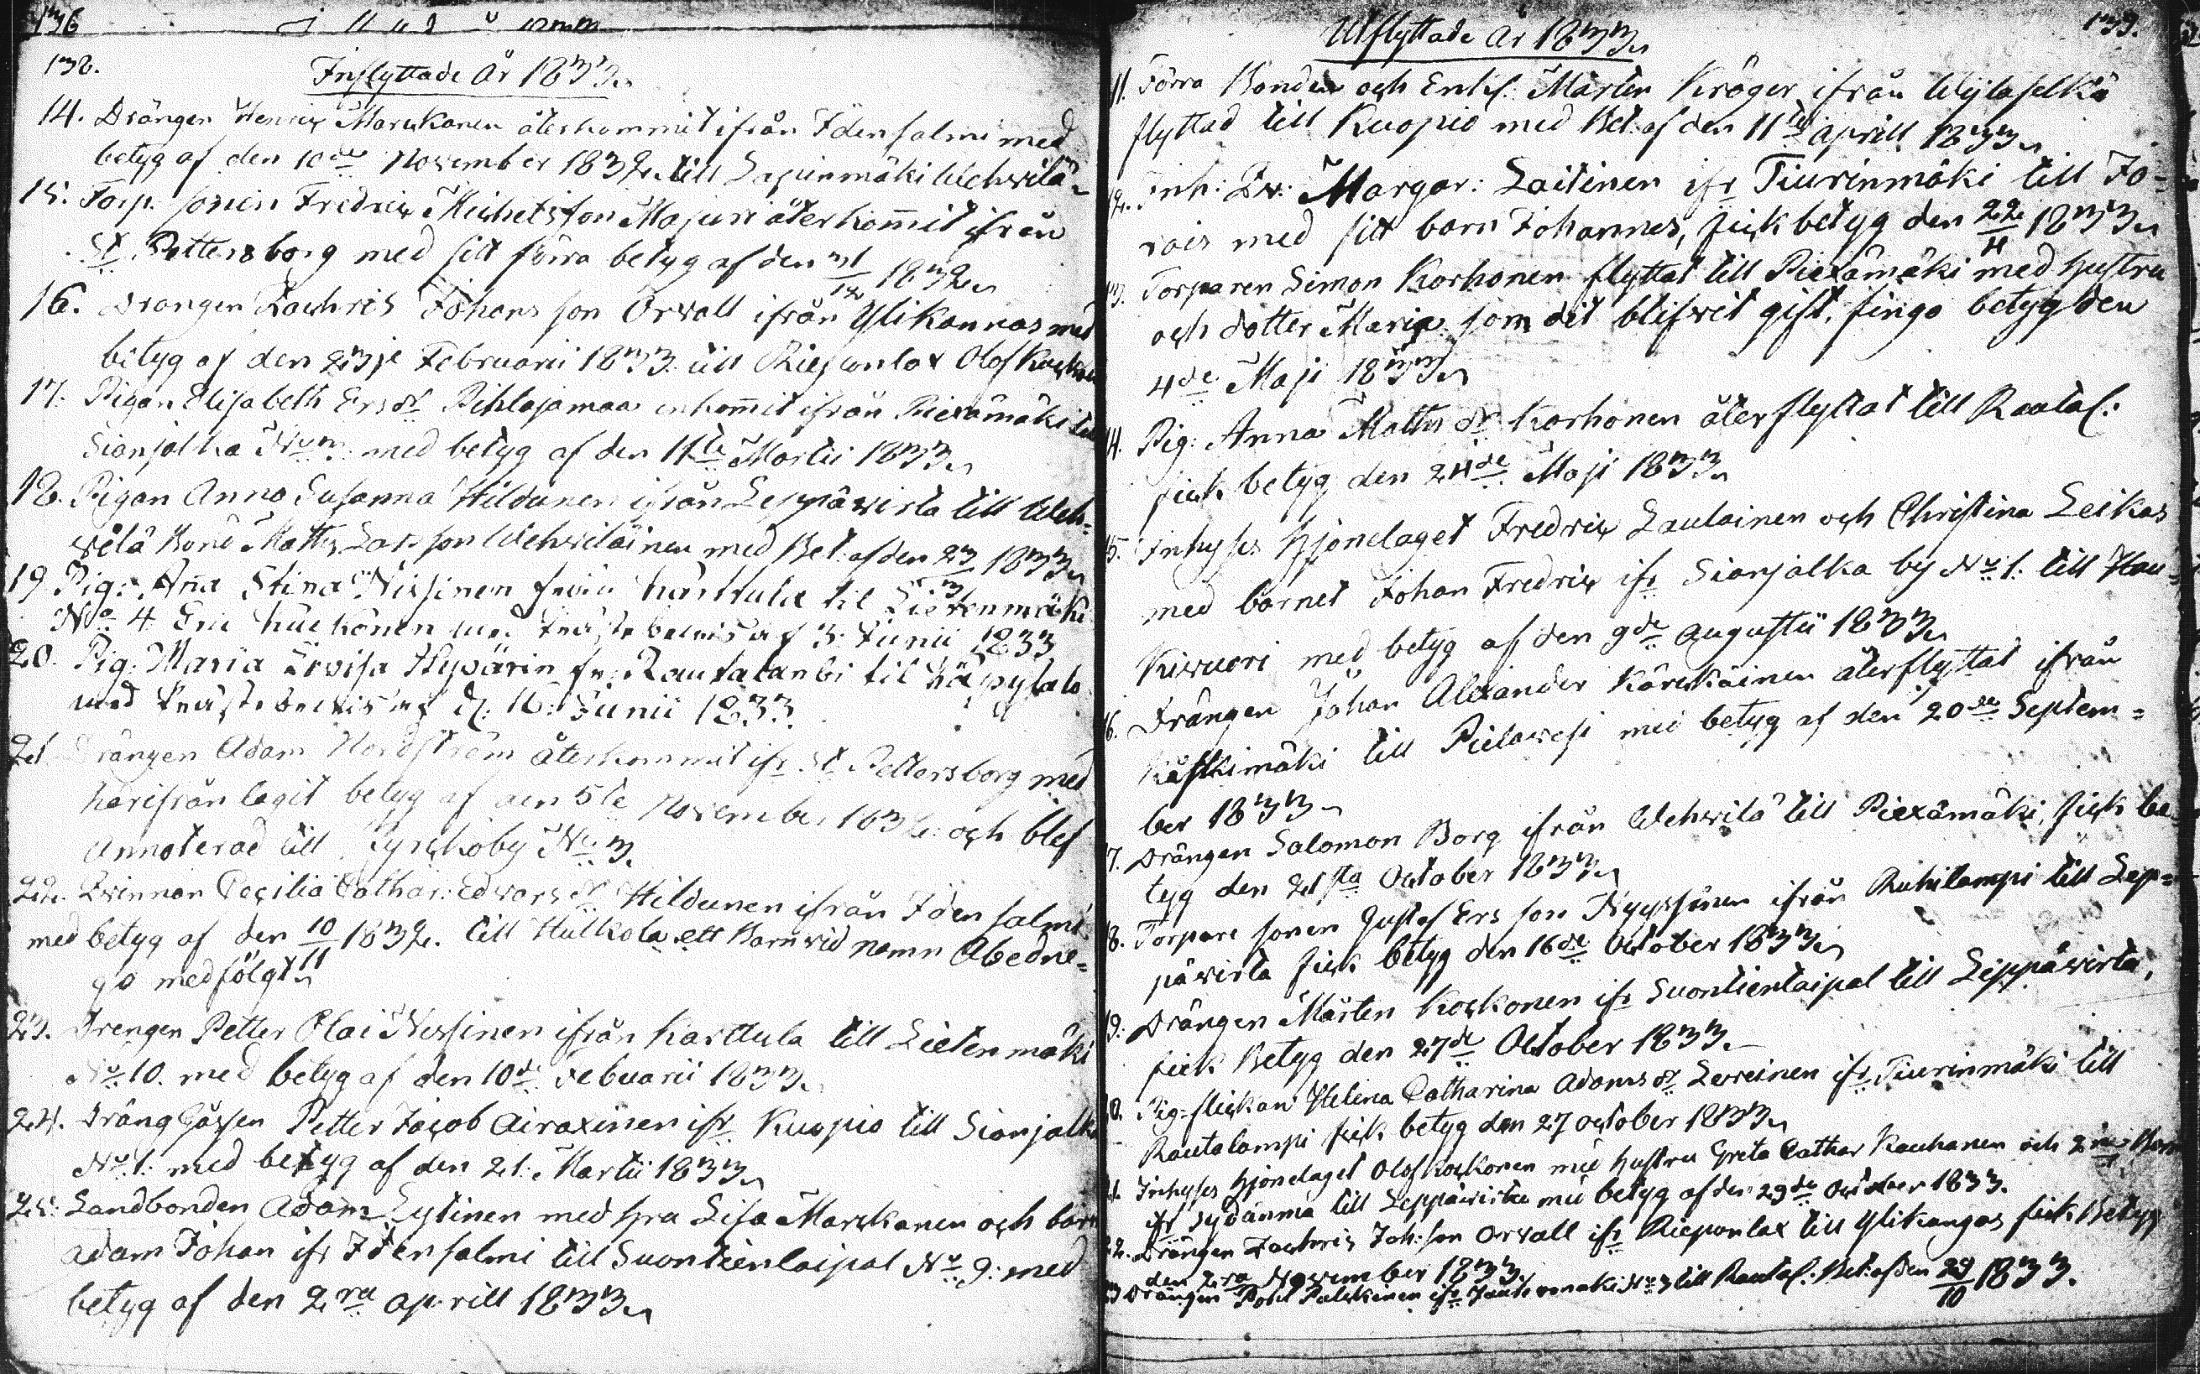 136
138.
Inflyttade År 1833.
14. Drängen Henric Marckanen återkommit ifrån Idensalmi med
betyg af den 10de November 1832. till Lapinmäki Wehvilä-
15. Torp. sonen Fredric Michelsson Majuri återkom̅it ifrån
St Pettersborg med sitt förra betyg af den 31/12 1832.
16. Drängen Zachris Johans son Orvall ifrån Ylikannas med
betyg af den 23je Februarii 1833. till Rieponlax Olof
17. Pigan Elisabeth Ers dr Pihlajamaa inkom̅it ifrån Piexämäki till
Sianjalka No 3. med betyg af den 11te Martii 1833.
18. Pigan Anna Susanna Hildunen ifrån Leppävirta till Weh-
vilä Bond Matts Larsson Wehviläinen med Bet. af den 23/3 1833.
19. Pig: An̅a Stina Nissinen från Karttula til Lietenmäki
No 4. med Prästebewis af 3. Junii 1833
20. Pig. Maria Lovisa Hyvärin fr: Rautalambi til
med Prästebewis af d. 16: Junii 1833.
21. Drängen Adam Nordström återkommit ifr St Pettersborg med
härifrån tagit betyg af den 5te November 1832. och blef
Annoterad till Kyrckoby No 3.
22. Qvinnan Cecilia Cathar: Edvars dr Hildunen ifrån Idensalmi
med betyg af den 10/11 1832. till Hulkola ett Barn vid namn Abedne-
go medfölgt.
23. Drengen Petter Olai Nissinen ifrån Karttula till Lietenmäki
No 10. med betyg af den 10de Febuarii 1833.
24. Dräng Gåssen Petter Jacob Airaxinen ifr Kuopio till Sianjalka
No 1: med betyg af den 21: Martii 1833.
25. Landbonden Adam Lytinen med Hra Lisa Marckanen och barn
Adam Johan ifr Idensalmi till Suontientaipal No 9: med
betyg af den 2ra aprill 1833.
139.
Utflyttade År 1833.
11. Förra Bonden och Enkl: Mårten Kröger ifrån Wijtaselkä
flyttad till Kuopio med Bet: af den 11te aprill 1833.
12. Inh: Qv: Margar: Laitinen ifr Tiurinmäki till Jo-
rois med sitt barn Johannes, fick betyg den 22/4 1833.
13. Torparen Simon Korhonen flyttat till Piexämäki med hustru
och dotter Maria som dit blifvit gift, fingo betyg den
4de Maji 1833.
14. Pig: Anna Matts dr Korhonen återflyttat till Rautal:
fick betyg den 24de Maji 1833.
15. Inhyses Hjonelaget Fredric Laulainen och Christina Leikas
med barnet Johan Fredric ifr Sianjalka by No 1: till Hau-
kivuori med betyg af den 9de augustii 1833.
16. Drängen Johan Alexander Kärckäinen återflyttat ifrån
Koskimäki till Pielavesi med betyg af den 20de Septem-
ber 1833.
17. Drängen Salomon Borg ifrån Wehvilä till Piexämäki, fick be-
tyg den 21sta October 1833.
18. Torpare sonen Gustaf Ers son Nyyssönen ifrån Ruhilampi till Lep-
pävirta fick betyg den 16de October 1833.
19. Drängen Mårten Kockonen ifr Suontientaipal till Leppävirta,
fick Betyg den 27de October 1833.
20. Pig-flickan Helena Catharina Adams dr Levoinen ifr Tiurinmäki till
Rautalampi fick betyg den 27 october 1833.
21. Inhyses Hjonelaget Olof Kockonen med hustru Greta Cathar Kauhanen och 2ne Barn
ifr Sydänmä till Leppävirta med betyg af den 29de October 1833.
22. Drängen Zachris Joh: son Orvall ifr Rieponlax till Ylikangas fick Betyg
den 2ra November 1833.
23 Drängen Påhl Pulckinen ifr No 3 till Rautal: Bet: af den 29/10 1833.